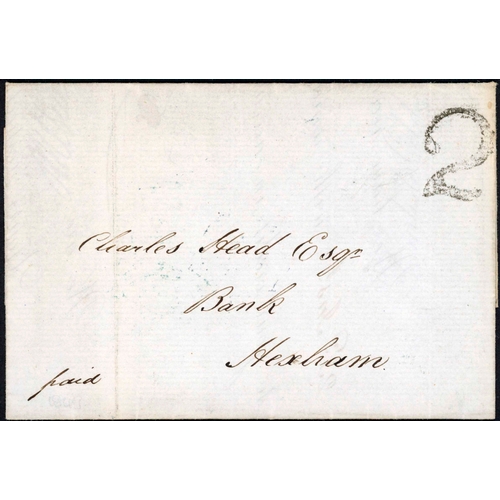 2
Charles Head Esqr
Bank
Hexham.
paid